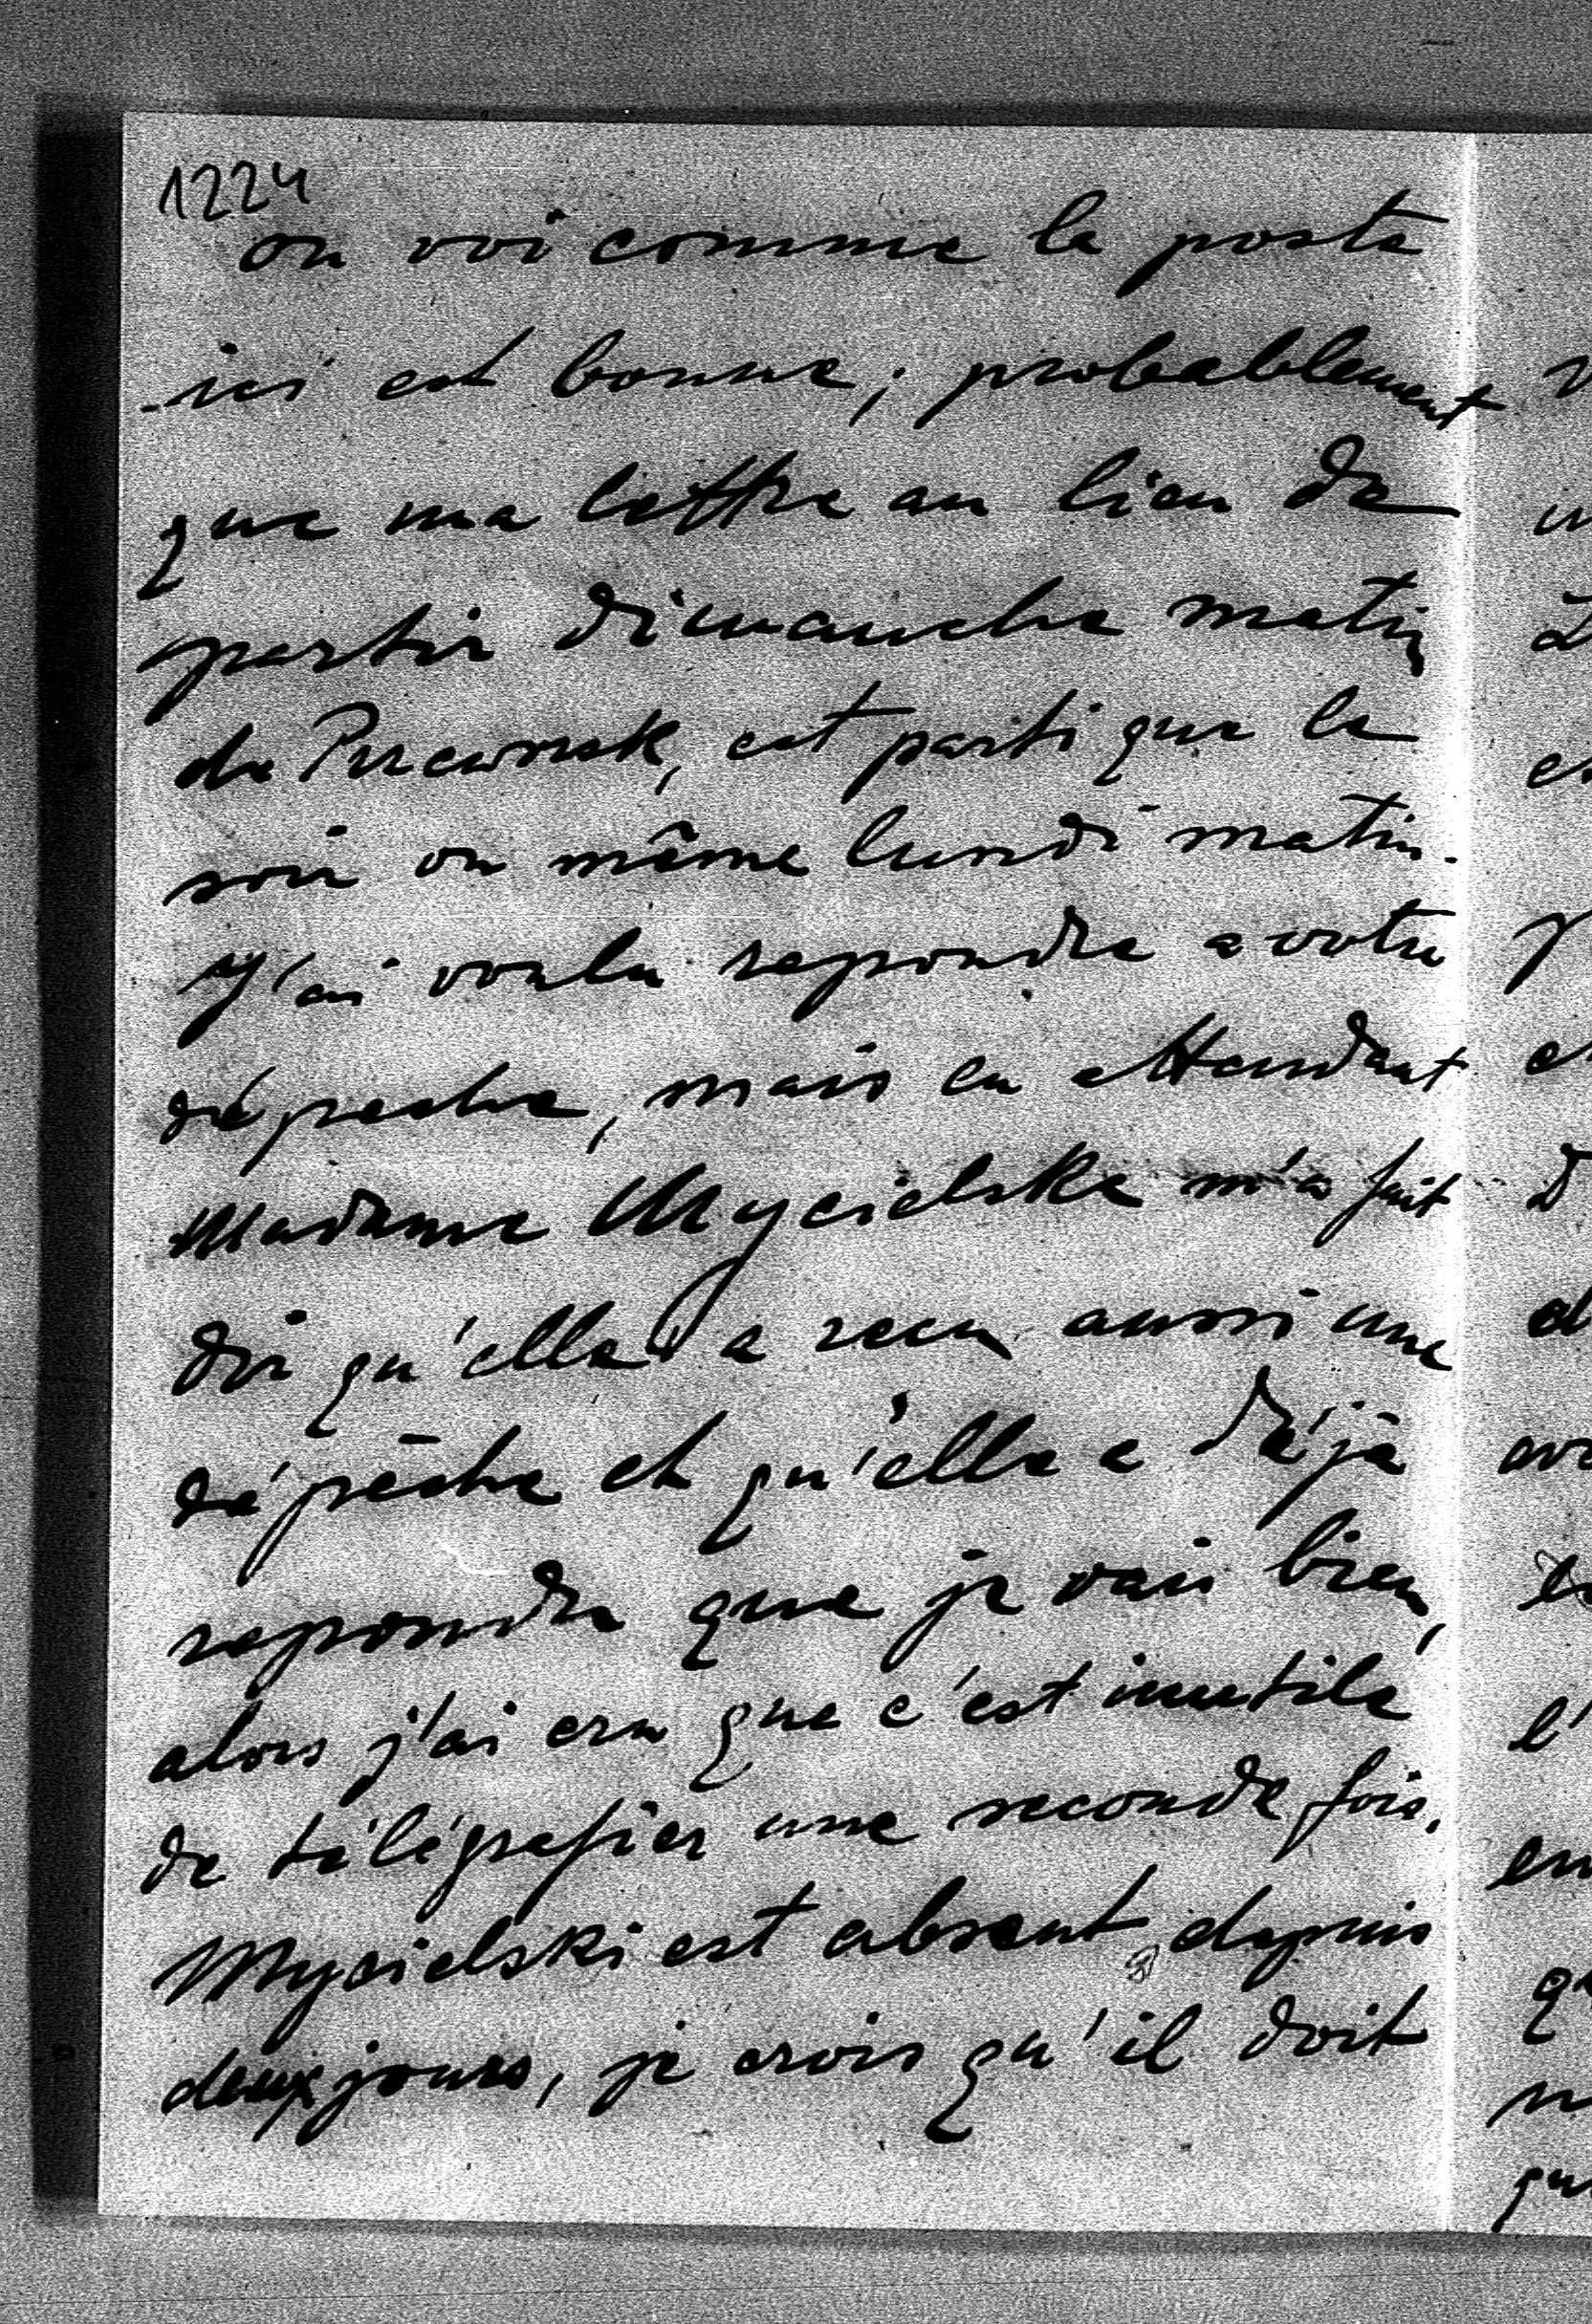 1224
on voi comme la poste
ici est bonne; probablement
que ma lettre au lieu de
partir dimanche matin
de Przeworsk, est parti que le
soir ou même lundi matin.
J'ai voulu repondre a votre
dépeche, mais en attendant
Madame Mycielska m'a fait
dir qu'elle a recu aussi une
dépêche et qu'elle a déjà
repondu que je vais bien,
alors j'ai cru que c'est inutile
de télégrafier une seconde fois.
Mycielski est absent depuis
deux jours, je crois qu'il doit